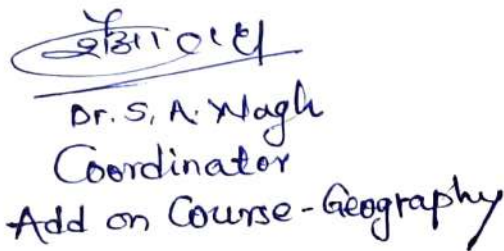 Dr. S. A. Wagh
Coordinator
Add on Course - Geography